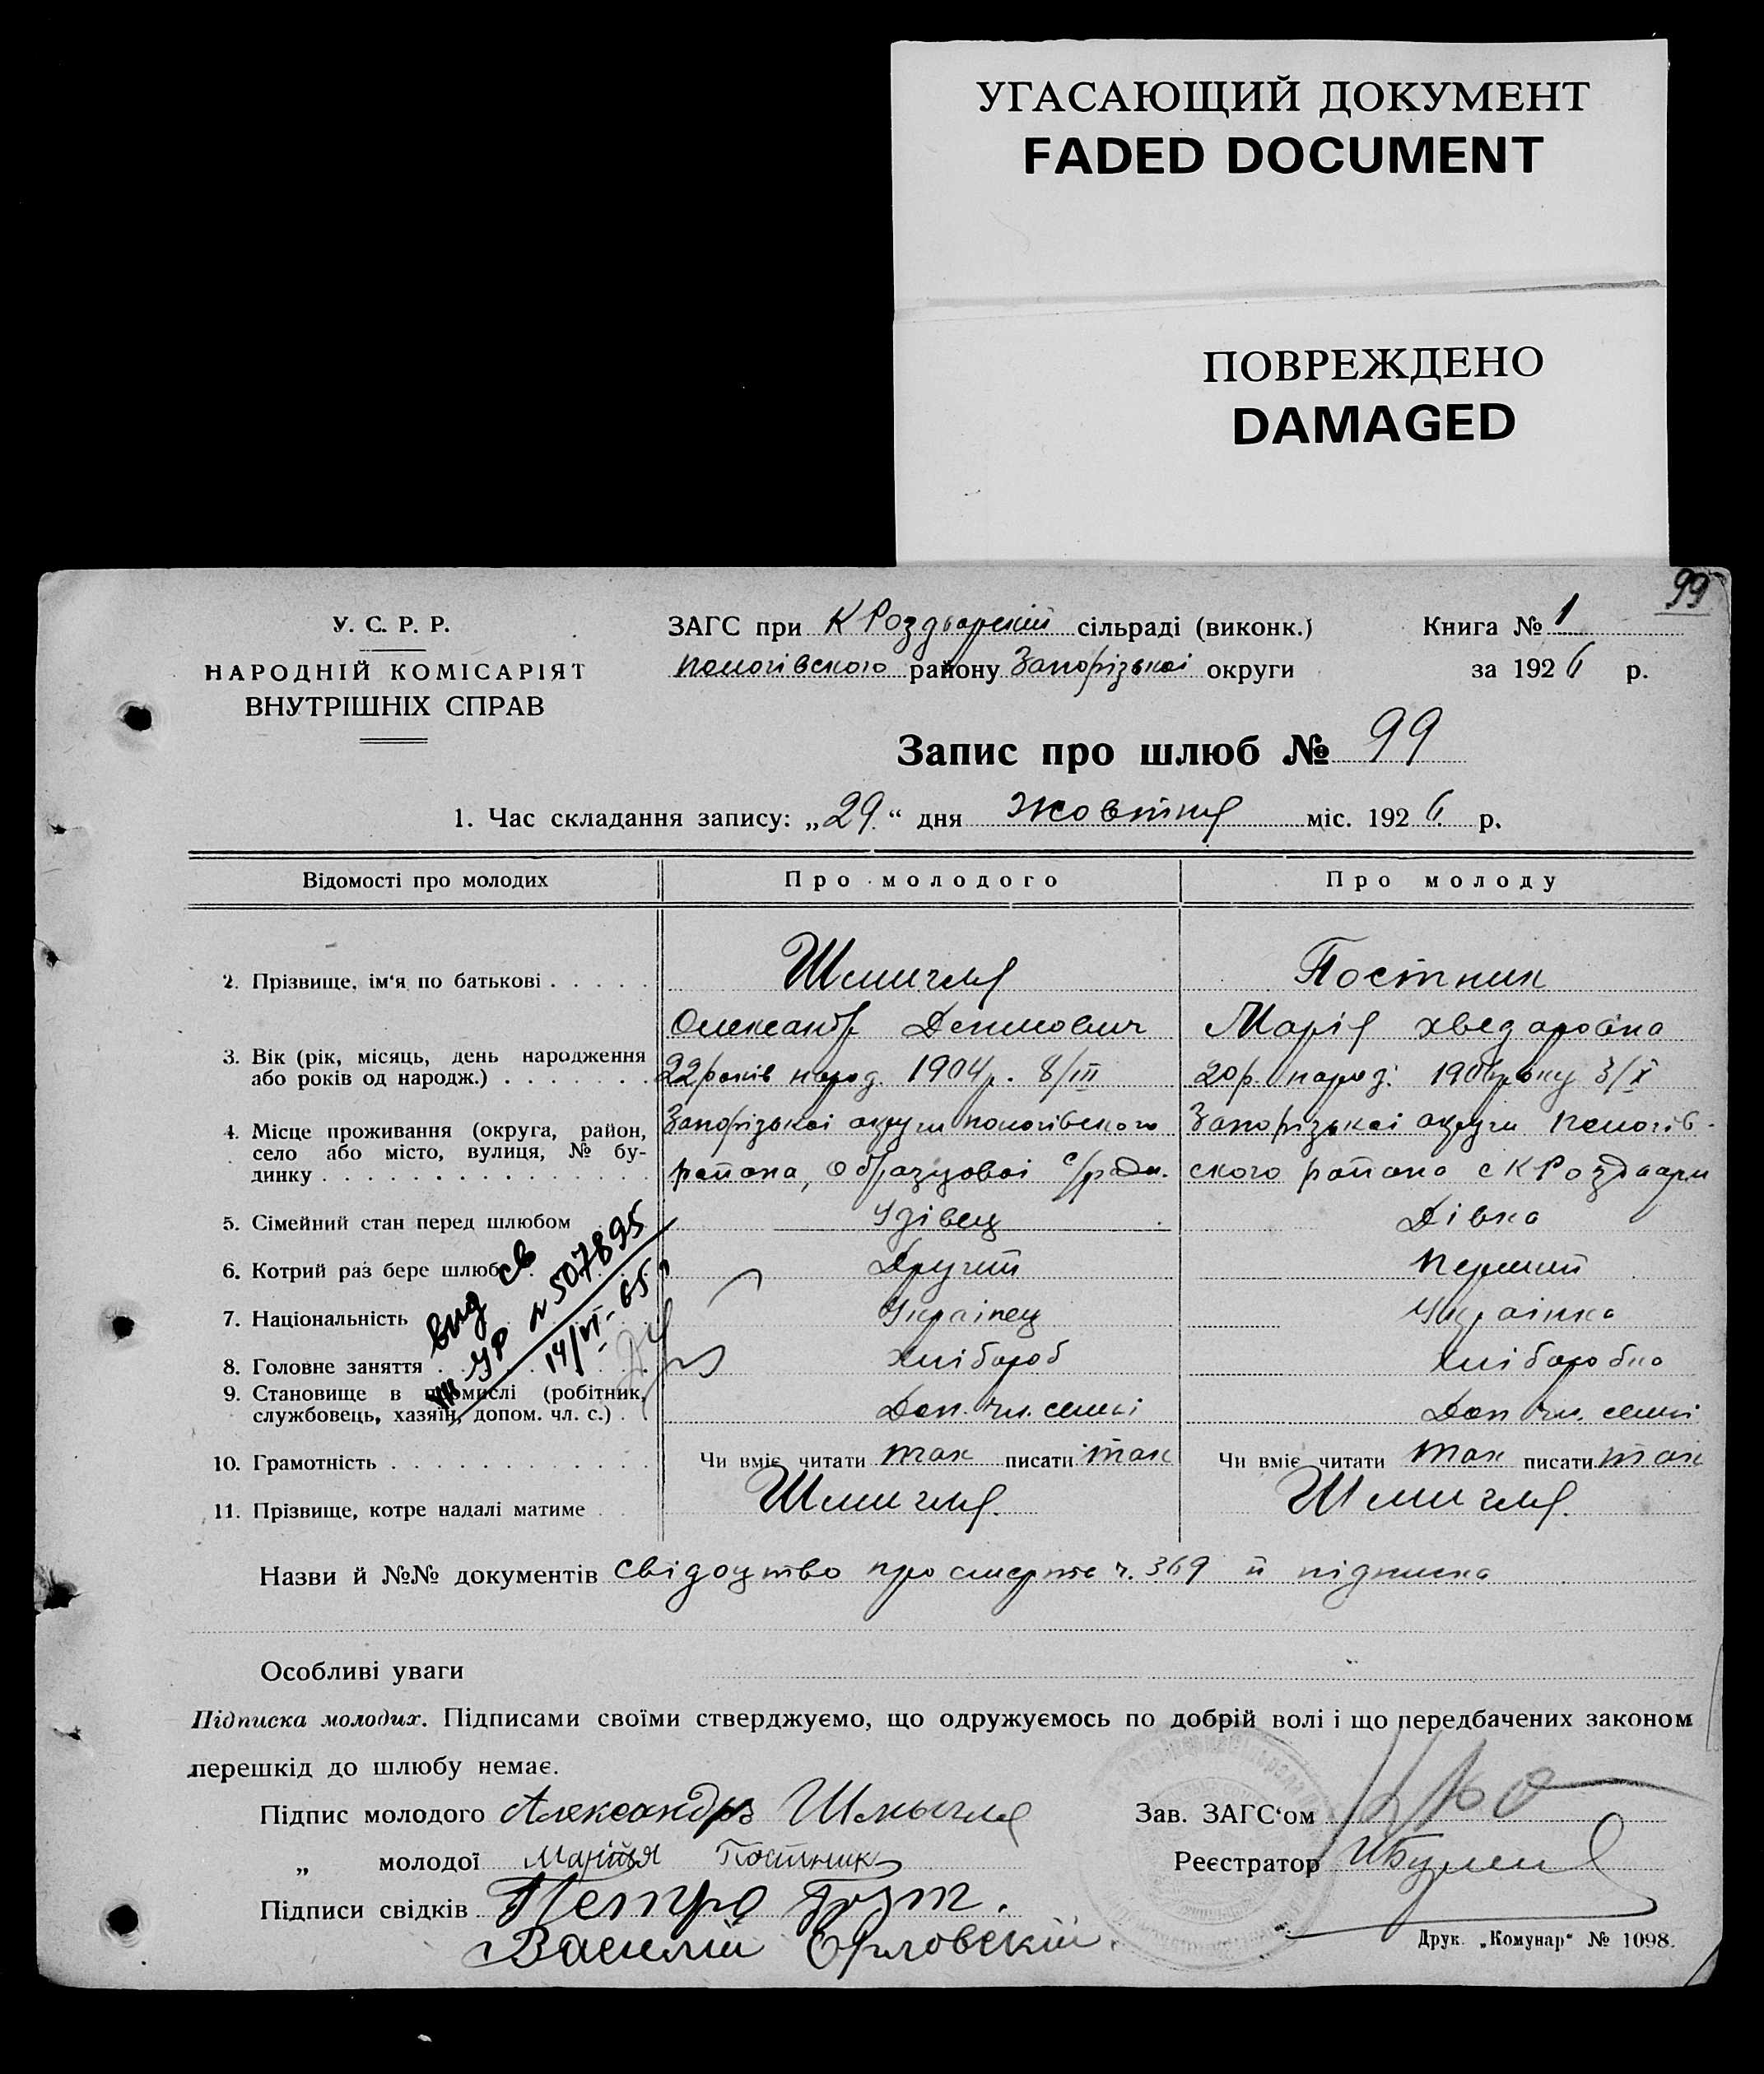 УГАСАЮЩИЙ ДОКУМЕНТ
FADED DOCUMENT
ПОВРЕЖДЕНО
DAMAGED
99
У. С. Р. Р.
НАРОДНІЙ КОМІСАРІЯТ
ВНУТРІШНІХ СПРАВ
ЗАГС при К Роздорській сільраді (виконк.)
пологівського району Запорізькоі округи
Книга № 1
за 1926 р.
Запис про шлюб № 99
1. Час складання запису: „29“ дня Жовтня міс. 1926 р.
Відомості про молодих Про молодого Про молоду
2. Прізвище, ім'я по батькові Шмигля Постник
Олександр Демидович Марія хведаровна
3. Вік (рік, місяць, день народження або років од народж.) 22 років народ. 1904 р. 8/III 20 р. народ. 1906 року 3/X
4. Місце проживання (округа, район, село або місто, вулиця, № будинку Запорізькоі округи пологівського Запорізькоі округи пологів-
района, Образцовоі с/ради. ского района с К Роздори
5. Сімейний стан перед шлюбом Удівец Дівка
6. Котрий раз бере шлюб Другий Перший
7. Національність Украінец Украінка
8. Головне заняття Хлібороб Хліборобка
9. Становище в промислі (робітник, службовець, хазяїн, допом. чл. с.) Доп. чл. семьі Доп чл. семьі
вид св
УР № 507895
14/VI-65
10. Грамотність Чи вміє читати так писати так Чи вміє читати так писати так
11. Прізвище, котре надалі матиме Шмигля. Шмигля.
Назви й №№ документів свідоцтво про смерть ч. 369 й підписка
Особливі уваги
Підписка молодих. Підписами своїми стверджуємо, що одружуємось по добрій волі і що передбачених законом
перешкід до шлюбу немає.
Підпис молодого Александръ Шмыгля
„ молодої Марія Постник
Підписи свідків Петро
Василій Орловскій.
Зав. ЗАГС‘ом
Реєстратор
Друк. „Комунар“ № 1098.